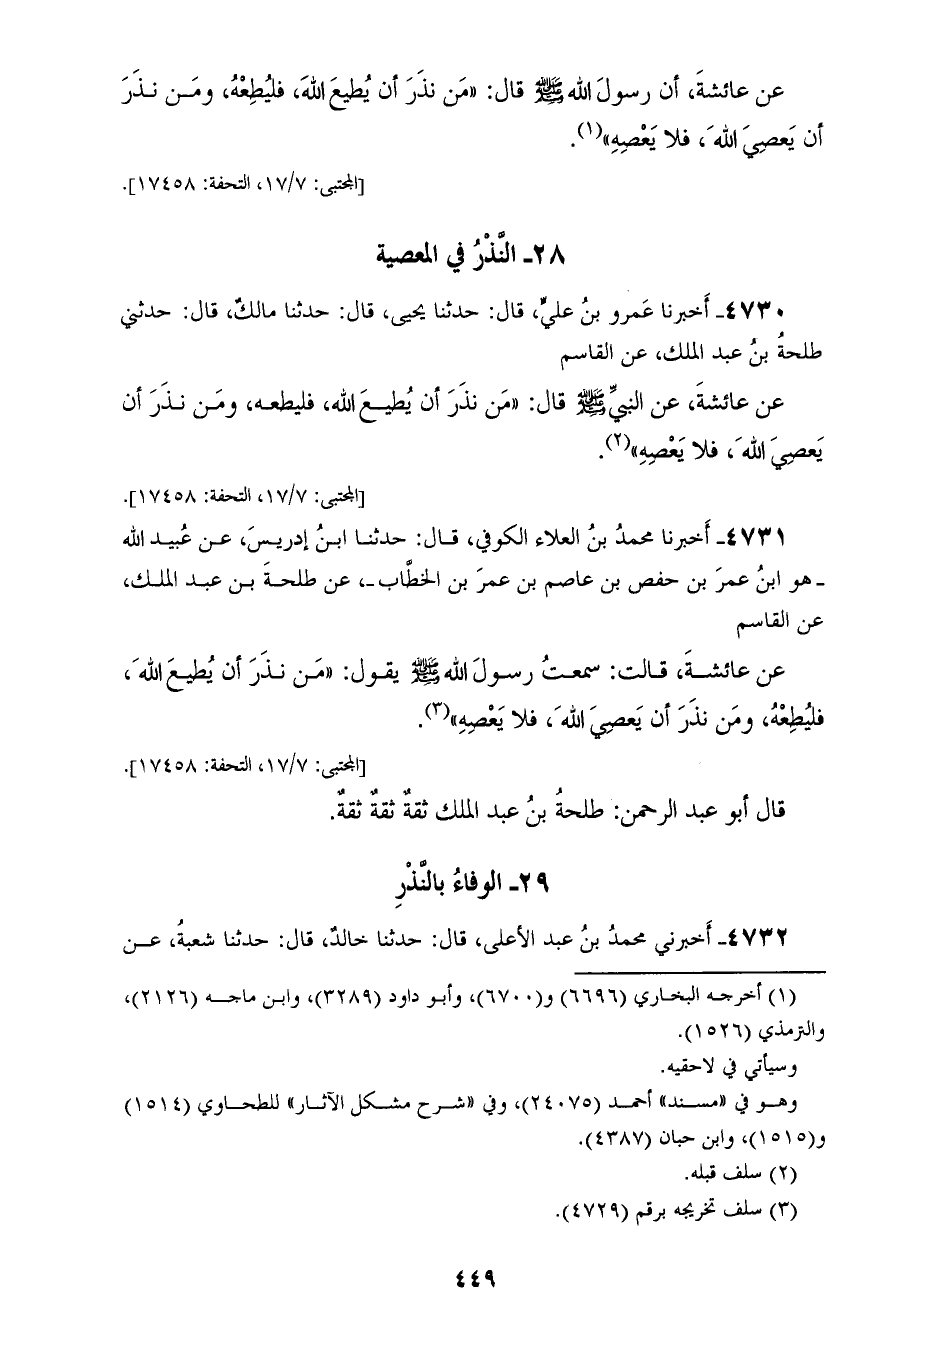 عن عائشةَ، أن رسولَ الله ﷺ قال: «مَن نذَرَ أن يُطيعَ اللهَ، فليُطِعْهُ، ومَـن نـذَرَ
أن يَعصِيَ اللهَ، فلا يَعْصِهِ»(١).
[المجتبى: ١٧/٧، التحفة: ١٧٤٥٨].
٢٨ـ النَّذْرُ في المعصية
٤٧٣٠ـ أَخبرنا عَمرو بنُ عليٍّ، قال: حدثنا يحيى، قال: حدثنا مالكٌ، قال: حدثني
طلحةُ بنُ عبد الملك، عن القاسم
عن عائشةَ، عن النبيِّ ﷺ قال: «مَن نذَرَ أن يُطيـعَ الله، فليطعـه، ومَـن نـذَرَ أن
يَعصِيَ اللهَ، فلا يَعْصِهِ»(٢).
[المجتبى: ١٧/٧، التحفة: ١٧٤٥٨].
٤٧٣١ـ أَخبرنا محمدُ بنُ العلاء الكوفي، قـال: حدثنـا ابـنُ إدريـسَ، عـن عُبيـد الله
ـ هو ابنُ عمرَ بن حفص بن عاصم بن عمرَ بن الخطَّاب ـ، عن طلحـةَ بـن عبـد الملـك،
عن القاسم
عن عائشـةَ، قـالت: سمعـتُ رسـولَ الله ﷺ يقـول: «مَـن نـذَرَ أن يُطيـعَ اللهَ،
فليُطِعْهُ، ومَن نذَرَ أن يَعصِيَ اللهَ، فلا يَعْصِهِ»(٣).
[المجتبى: ١٧/٧، التحفة: ١٧٤٥٨].
قال أبو عبد الرحمن: طلحةُ بنُ عبد الملك ثقةٌ ثقةٌ ثقةٌ.
٢٩ـ الوفاءُ بالنَّذْرِ
٤٧٣٢ـ أَخبرني محمدُ بنُ عبد الأعلى، قال: حدثنا خالدٌ، قال: حدثنا شعبةُ، عـن
(١) أخرجـه البخـاري (٦٦٩٦) و(٦٧٠٠)، وأبـو داود (٣٢٨٩)، وابـن ماجـه (٢١٢٦)،
والترمذي (١٥٢٦).
وسيأتي في لاحقيه.
وهـو في «مسـند» أحمـد (٢٤٠٧٥)، وفي «شـرح مشـكل الآثـار» للطحـاوي (١٥١٤)
و(١٥١٥)، وابن حبان (٤٣٨٧).
(٢) سلف قبله.
(٣) سلف تخريجه برقم (٤٧٢٩).
٤٤٩